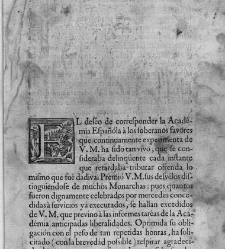 EL deseo de corresponder la Academia
mia Española à los soberanos favores
que continuamente experimenta de
V. M. ha sido tan vivo, que se consideraba
sideraba delinquente cada instante
que retardaba tributar ofrenda lo
mismo que fue dadiva. Premiò V.M. sus desvelos distinguiendose
tinguiendose de muchos Monarchas: pues quantos
fueron dignamente celebrados por mercedes concedidas
didas à servicios yà executados, se hallan excedidos
de V. M. que previno à las informes taréas de la Academia
démia anticipadas liberalidades. Oprimida su obligacion
gacion con el peso de tan repetidas honras, ha solicitado
citado (con la brevedad possible) respirar agradeci-